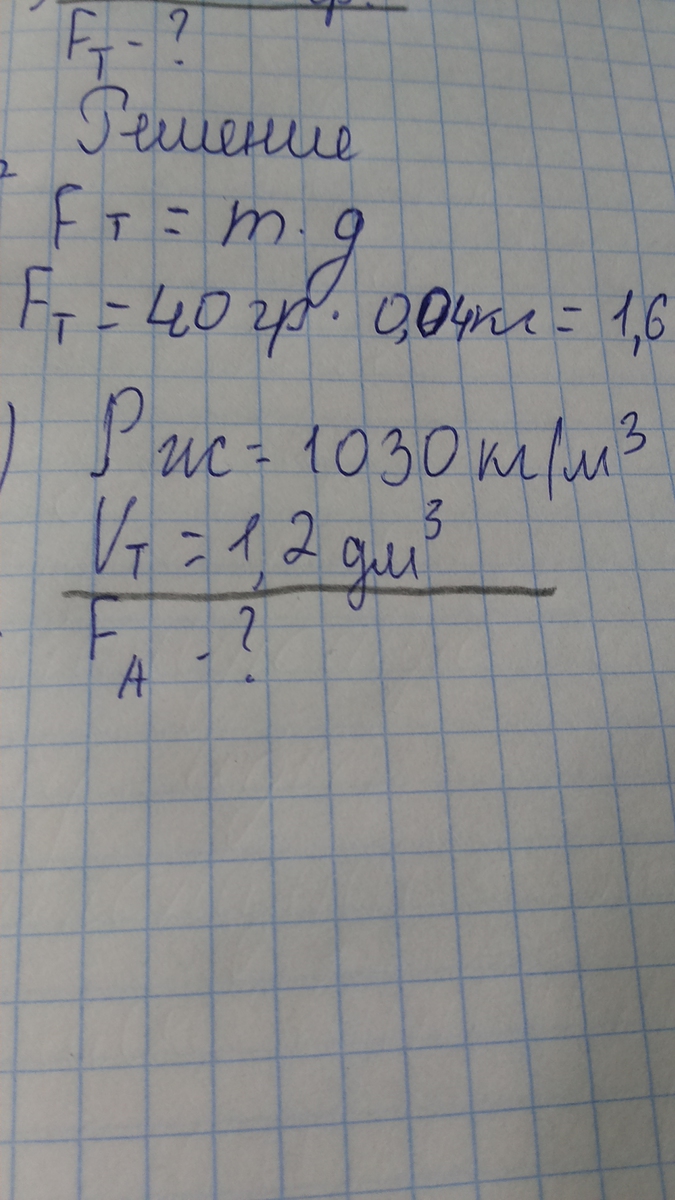 Fт - ?
Решение
Fт = m · g
Fт = 40 гр · 0,04кг = 1,6
) ρж = 1030 кг/м³
Vт = 1,2 дм³
FА - ?